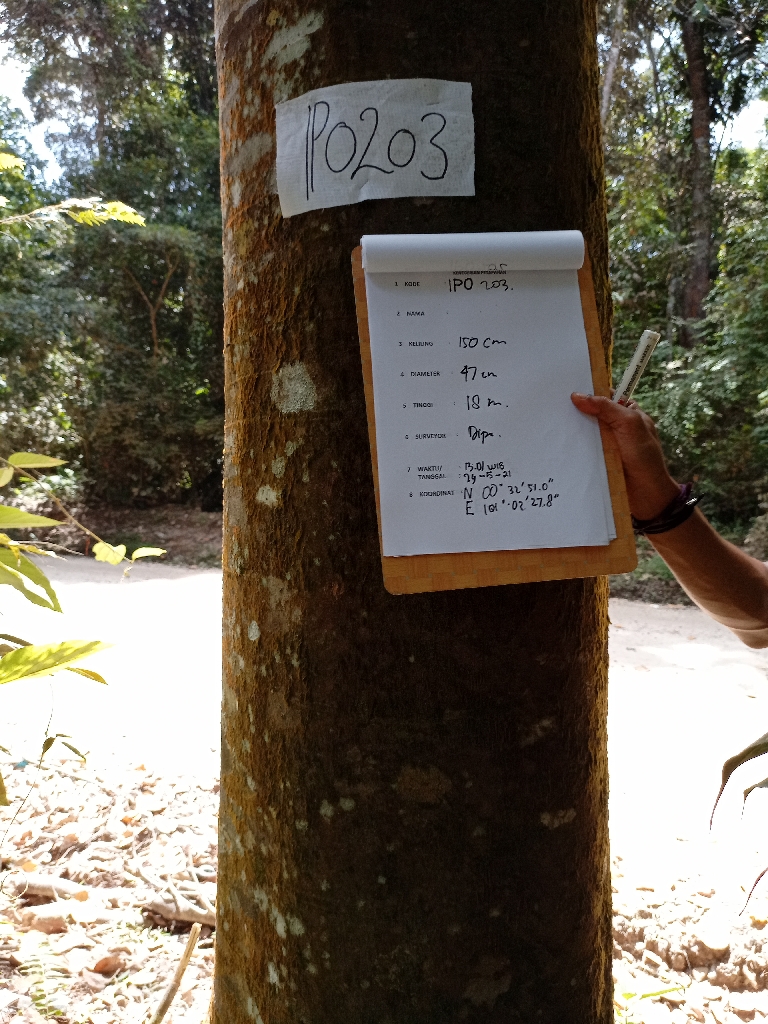 IPO203
1 KODE : IPO 203.
2 NAMA :
3 KELILING : 150 cm
4 DIAMETER : 47 cm
5 TINGGI : 18 m.
6 SURVEYOR : Dipo.
7 WAKTU/ : 13.01 WIB
TANGGAL : 29-5-21
8 KOORDINAT : N 00° 32' 51.0"
E 101° 02' 27.8"